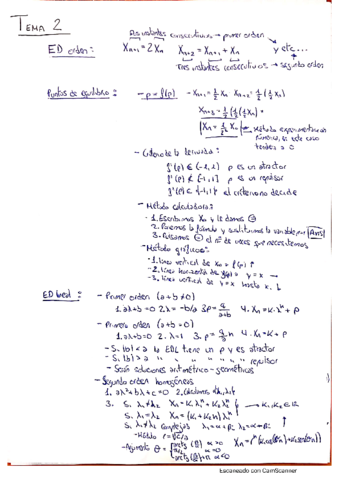 TEMA 2
Dos instantes consecutivos → primer orden
ED orden: Xn+1 = 2Xn Xn+2 = Xn+1 + Xn y etc...
Tres instantes consecutivos → segundo orden
Puntos de equilibrio: - p = f(p) - Xn+1 = 1/2 Xn Xn+2 = 1/2 (1/2 Xn)
Xn+3 = 1/2 (1/2 (1/2 Xn))
Método
numérico, en este caso
tendería a 0
- Criterio de la derivada:
f'(p) ∈ (-1,1) p es un atractor
f'(p) ∉ [-1,1] p es un repulsor
f'(p) ∈ {-1,1} el criterio no decide
- Método calculadora:
- 1. Escribimos X0 y le damos =
- 2. Ponemos la función y sustituimos la variable por Ans
- 3. Pulsamos = el nº de veces que necesitemos
- Método gráfico:
- 1. línea vertical de X0 a f(p) ↑
- 2. línea horizontal de y = x →
- 3. línea vertical de y = x hasta x. ↓
ED lineal: - Primer orden (a+b ≠ 0)
1. aλ+b=0 2. λ = -b/a 3. p = q/a+b 4. Xn = K·λ^n + p
- Primer orden (a+b = 0)
1. aλ+b=0 2. λ=1 3. p = q/a n 4. Xn = K + p
- Si |b| < a la EDL tiene un p y es atractor
- Si |b| > a " " " " " repulsor
- Serán soluciones aritmético-geométricas
- Segundo orden homogéneas
1. aλ²+bλ+c=0 2. Calculamos λ1, λ2
3. Si λ1 ≠ λ2 Xn = K1 λ1^n + K2 λ2^n K1, K2 ∈ R
Si λ1 = λ2 Xn = (K1 + K2 n) λ^n
Si λ1 ≠ λ2 complejas λ1 = α+βi λ2 = α-βi
- Módulo r = √c/a
- Argumento θ =
Escaneado con CamScanner